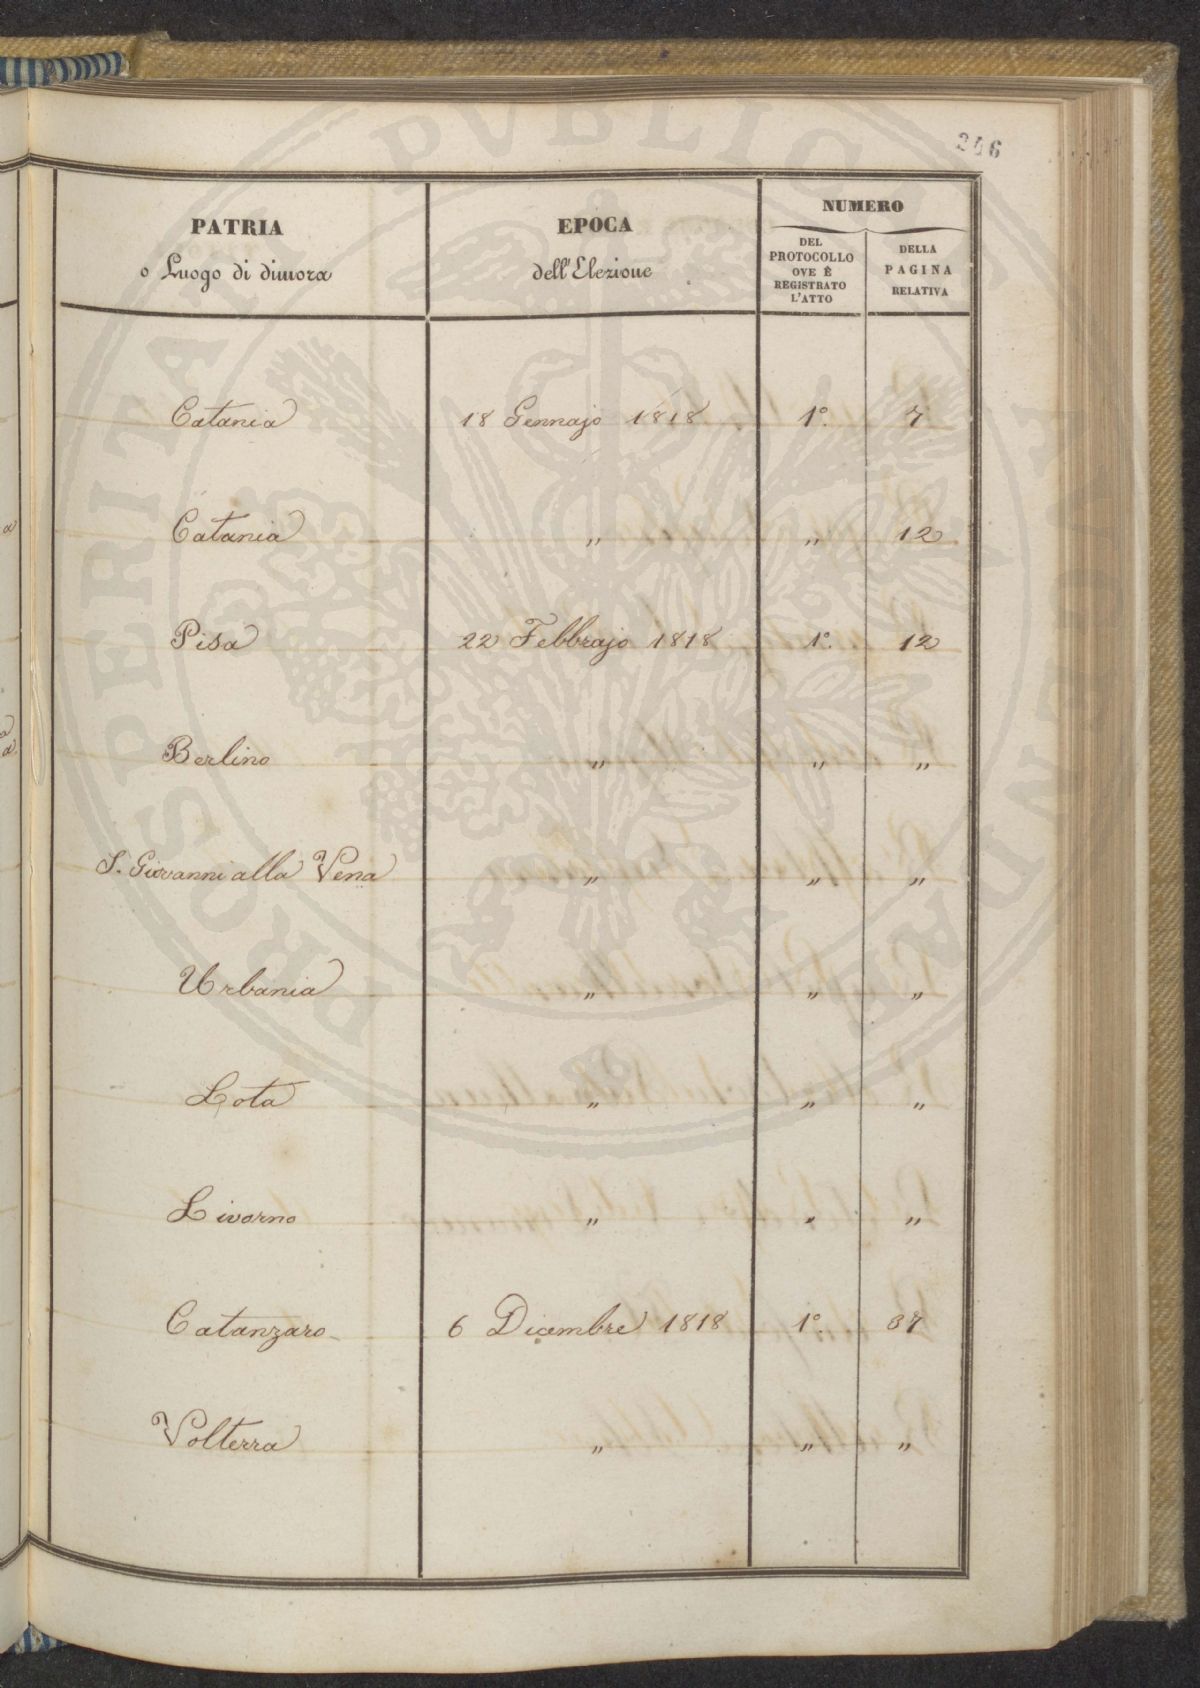 246
PATRIA
o Luogo di dimora
EPOCA
dell'Elezione
NUMERO
DEL
PROTOCOLLO
OVE È
REGISTRATO
L'ATTO
DELLA
PAGINA
RELATIVA
Catania 18 Gennajo 1818 1º. 7
Catania " " 12
Pisa 22 Febbrajo 1818 1º. 12
Berlino " " "
S. Giovanni alla Vena " " "
Urbania " " "
Lota " " "
Livorno " " "
Catanzaro 6 Dicembre 1818 1º. 37
Volterra " " "